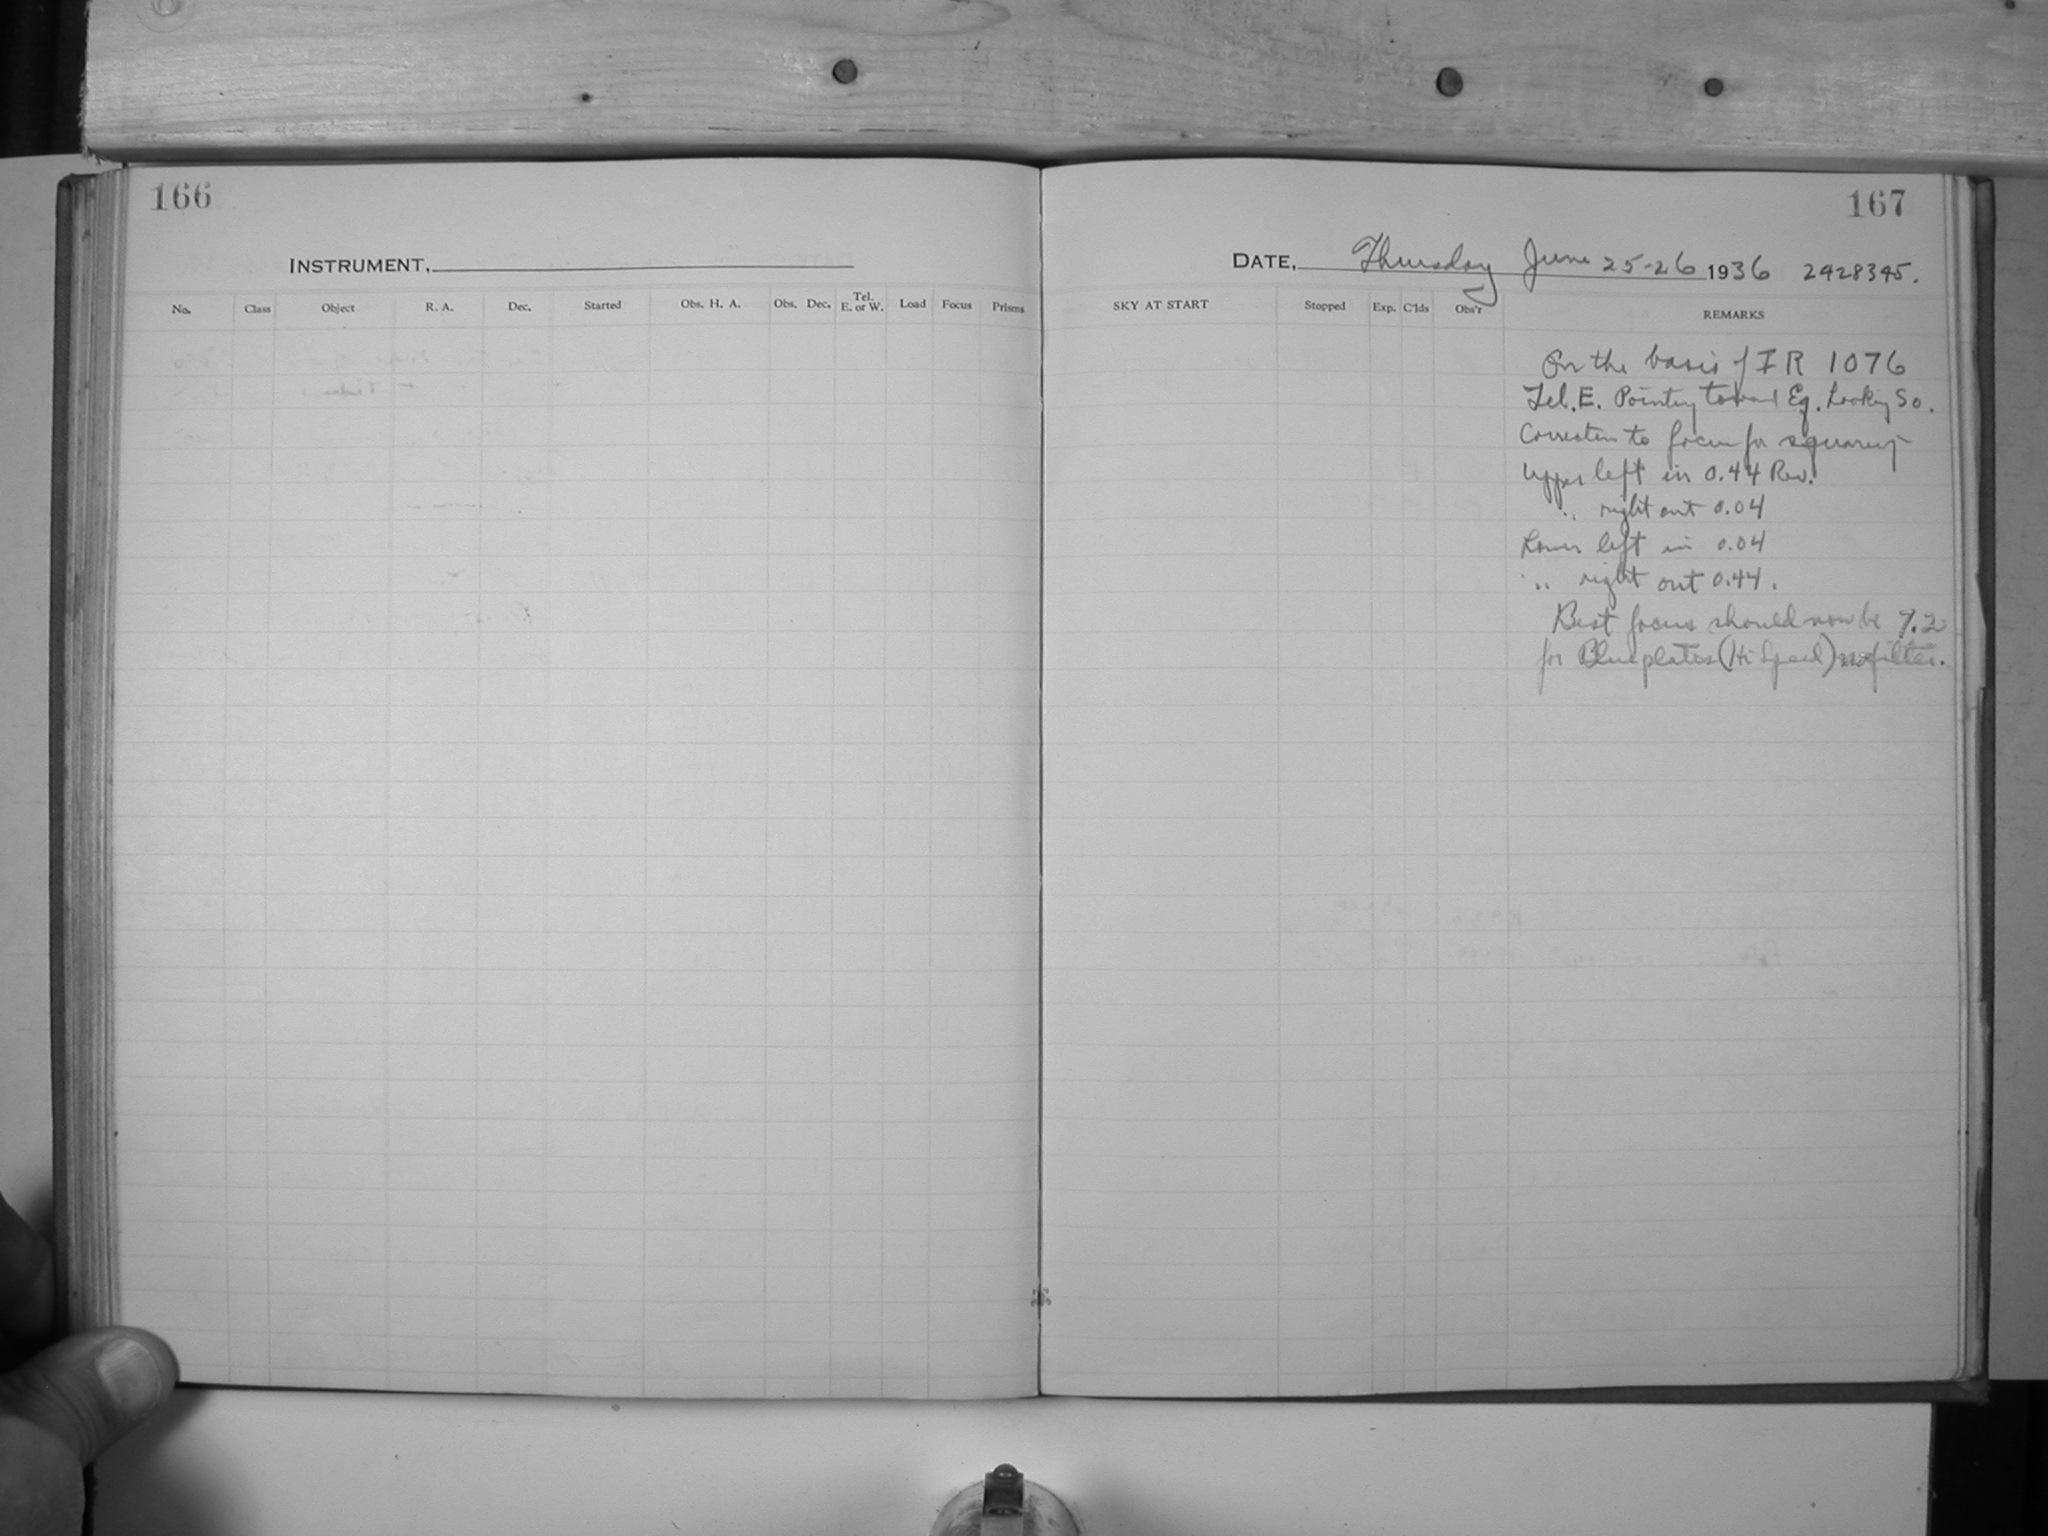 166
INSTRUMENT,
No. Class Object R. A. Dec. Started Obs. H. A. Obs. Dec. Tel. E. or W. Load Focus Prisms
167
DATE, Thursday June 25-26 1936 2428345.
SKY AT START Stopped Exp. C'lds Obs'r REMARKS
On the basis of I R 1076
Tel. E. Pointing toward Eq. Looking So.
Correction to focus for squaring
Upper left in 0.44 Rev.
" right out 0.04
Lower left in 0.04
" right out 0.44.
Best focus should now be 9.2
for Blue plates (Hi Speed) no filter.